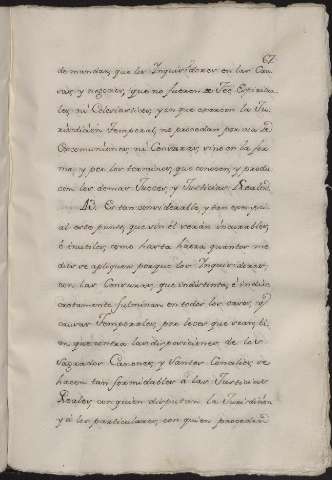 67
demandar, que los Inquisidores en las Cau-
sas, y negocios, que no fueren de Feé, Espiritua-
les, ni Eclesiasticos, y en que exercen la Ju-
risdicion Temporal, no procedan por via de
Excomuniones, ni Censuras, sino en la for-
ma, y por los terminos, que conocen, y proce-
con los demas Jueces, y Justicias Reales.
Es tan considerable, y tan esenci-
al este punto, que sin él serán incurables,
é inutiles, como hasta haora quantos me-
dios se apliquen, porque los Inquisidores,
con las Censuras, que indistinta, é indu-
castamente fulminan en todos los casos, y
causas Temporales, por leves que sean, si-
en que contra las disposiciones de los
Sagrados Canones, y Santos Concilios, se
hacen tan formidables á las Justicias
Reales, con quien disputan la Jurisdicion
y á los particulares, con quien proceden